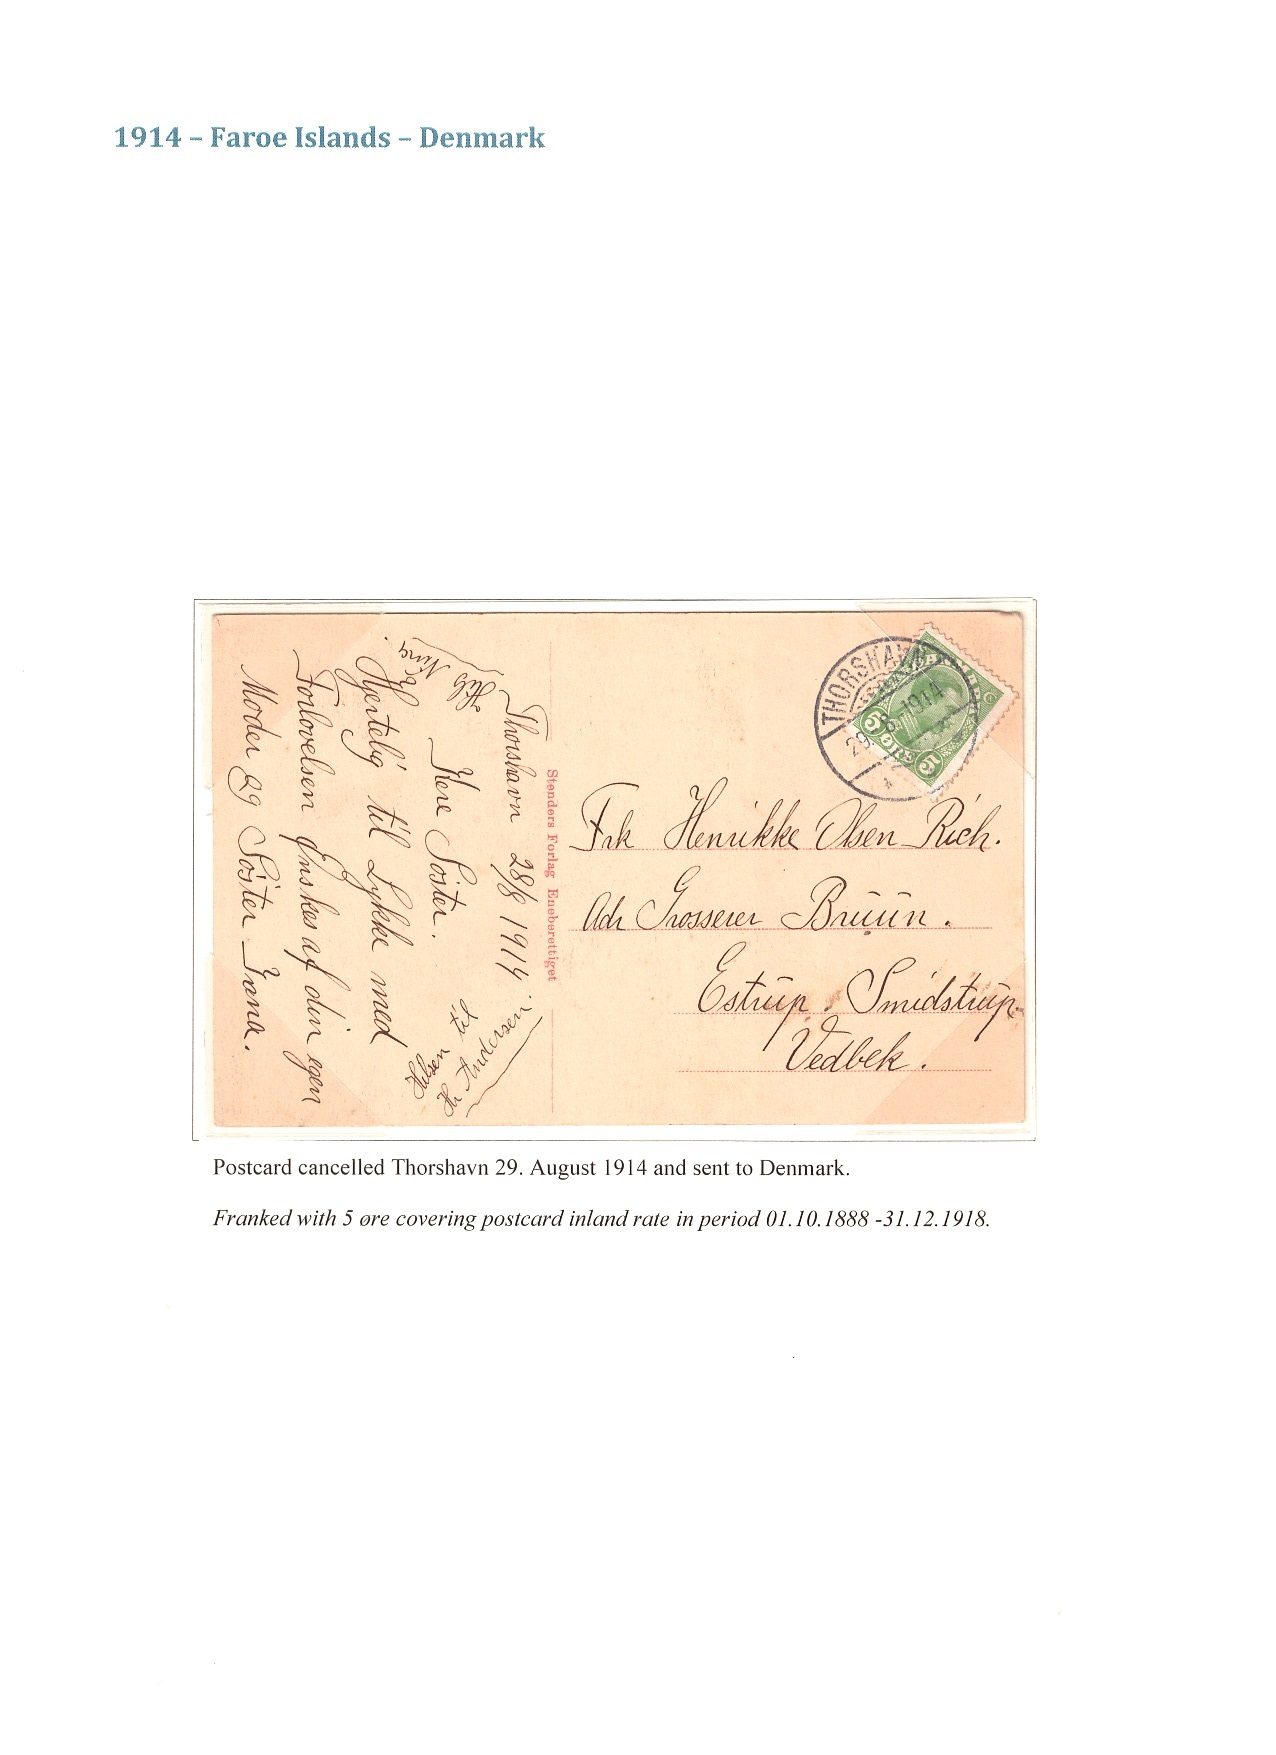 1914 – Faroe Islands – Denmark
THORSHAVN
29. 8. 1914
5 ØRE 5
Frk Henrikke Olsen Rich.
Adr Grosserer Bruun.
Estrup. Smidstrup.
Vedbek.
Stenders Forlag Eneberettiget
Thorshavn 28/8 1914.
Kere Søster.
Hjertelig til Lykke med
Forlovelsen Ønskes af din egen
Moder og Søster
Hilsen til
Hr Andersen.
Postcard cancelled Thorshavn 29. August 1914 and sent to Denmark.
Franked with 5 øre covering postcard inland rate in period 01.10.1888 -31.12.1918.